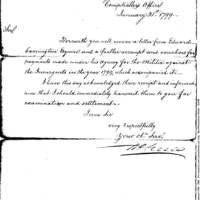 Comptrollers Office
January 31st 1799.
Sir,
Herewith you will receive a letter from Edward
Carrington Esquire and a further accompt and vouchers for
payments made under his Agency for the Militia against
the Insurgents in the year 1794, which accompanied it.
I have this day acknowledged their receipt and informed
him that I should immediately transmit them to you for
examination and settlement.
I am Sir
very respectfully
Your Ob. Serv.